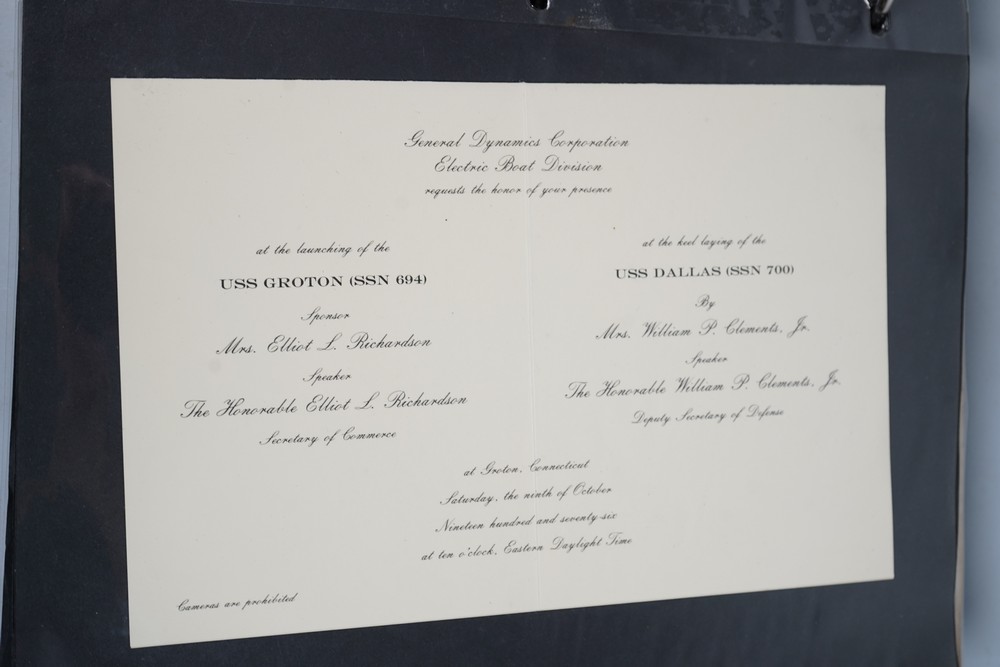 General Dynamics Corporation
Electric Boat Division
requests the honor of your presence
at the launching of the
USS GROTON (SSN 694)
Sponsor
Mrs. Elliot L. Richardson
Speaker
The Honorable Elliot L. Richardson
Secretary of Commerce
at the keel laying of the
USS DALLAS (SSN 700)
By
Mrs. William P. Clements, Jr.
Speaker
The Honorable William P. Clements, Jr.
Deputy Secretary of Defense
at Groton, Connecticut
Saturday, the ninth of October
Nineteen hundred and seventy-six
at ten o'clock, Eastern Daylight Time
Cameras are prohibited